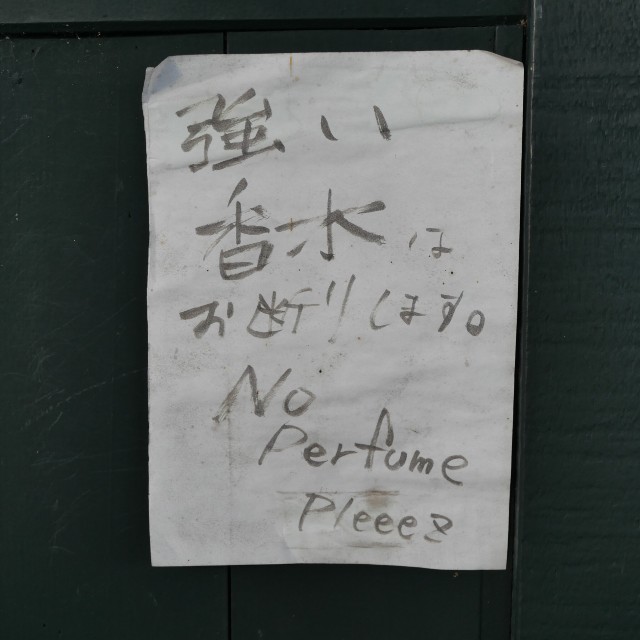 強い
香水は
お断りします。
No
Perfume
Pleeez